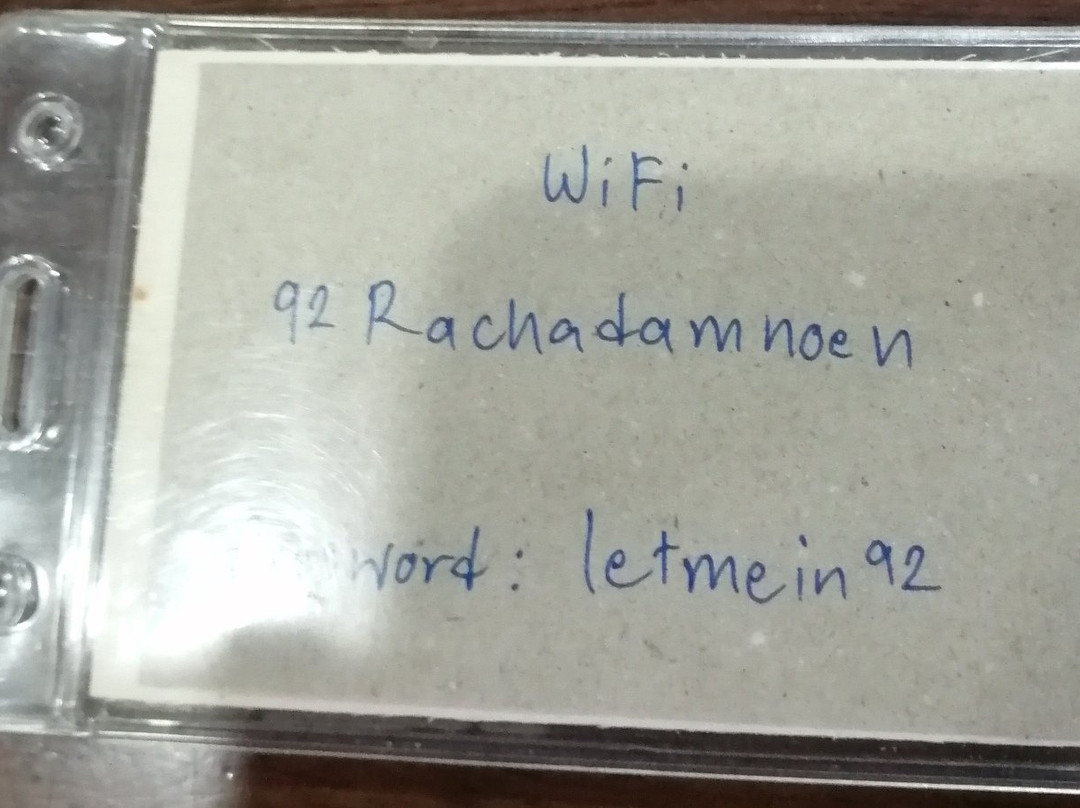 WiFi
92 Rachadamnoen
word: letmein92